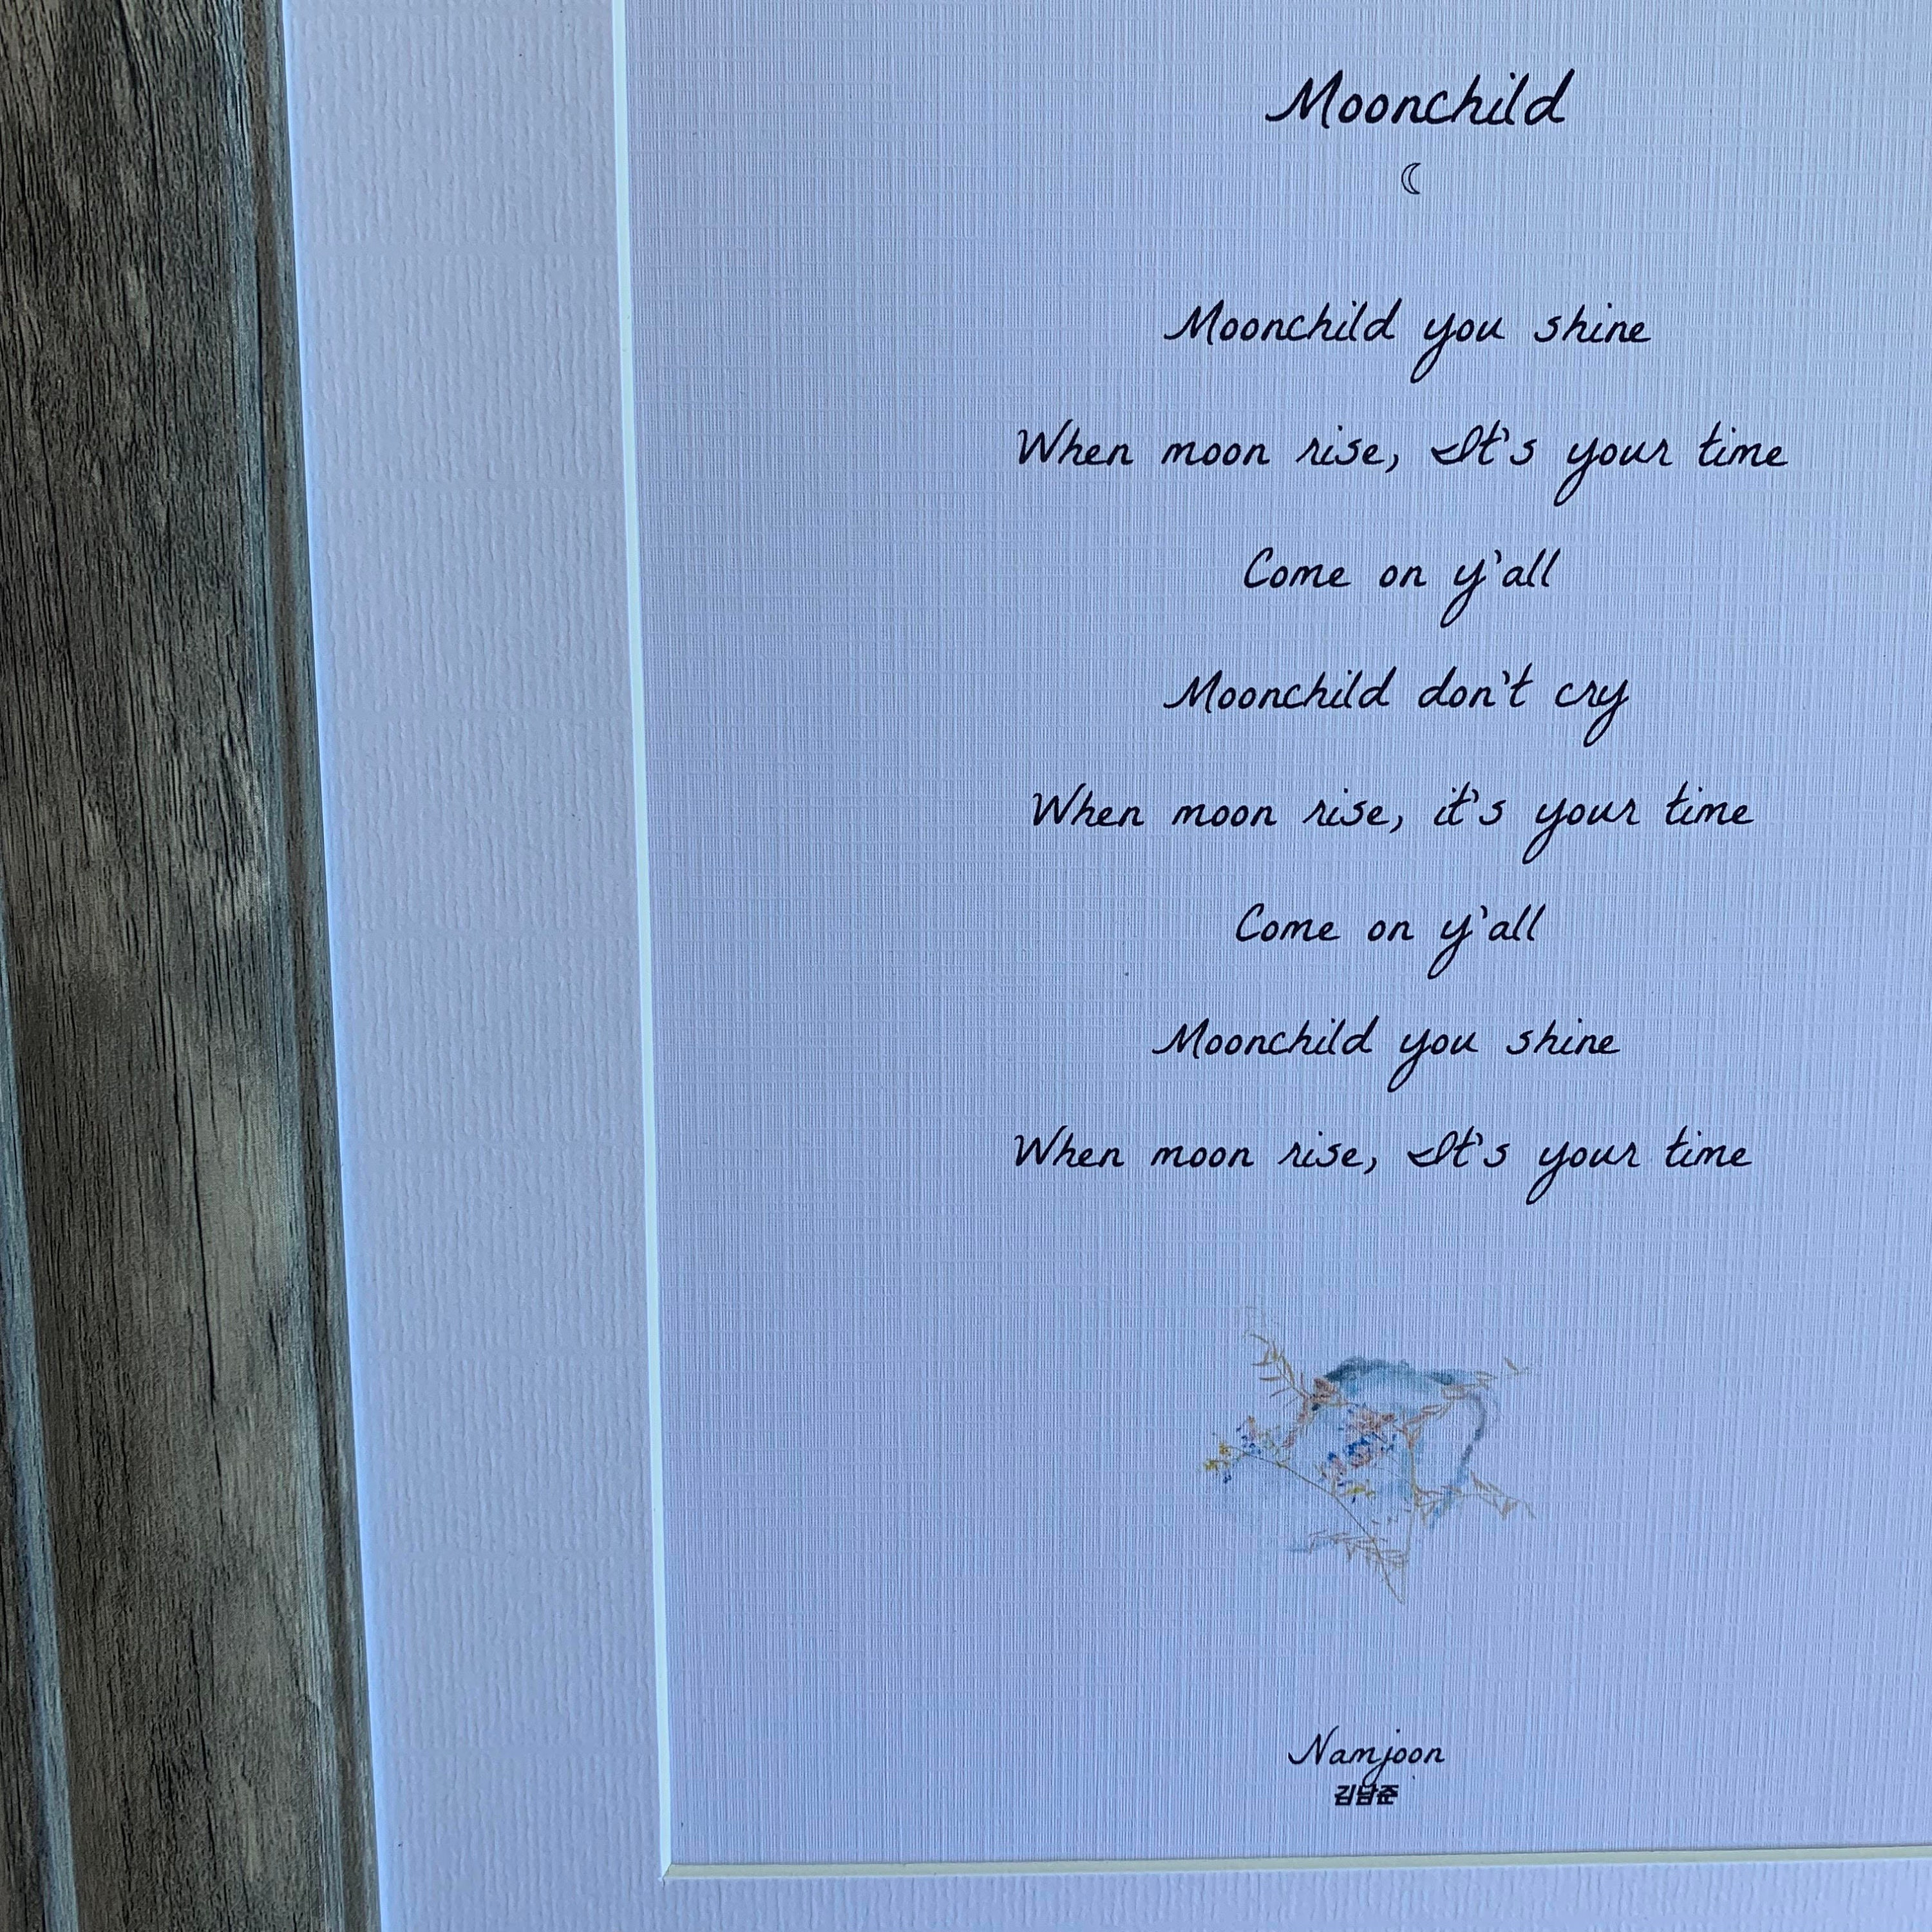 Moonchild
Moonchild you shine
When moon rise, It's your time
Come on y'all
Moonchild don't cry
When moon rise, it's your time
Come on y'all
Moonchild you shine
When moon rise, It's your time
Namjoon
김남준